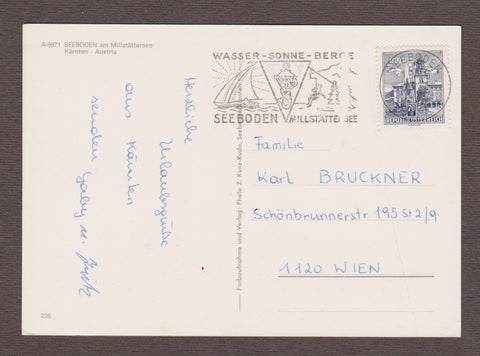 A-9871 SEEBODEN am Millstättersee
Kärnten - Austria
Herzliche
Urlaubsgrüße
aus Kärnten
senden Gaby u. Fritz
226
Farbaufnahme und Verlag: Photo Z. Kunz-Rudo, Seeboden
WASSER-SONNE-BERGE
SEEBODEN MILLSTÄTTERSEE
SEEBODEN
REPUBLIK ÖSTERREICH
Familie
Karl BRUCKNER
Schönbrunnerstr 195 St 2/9
1120 WIEN